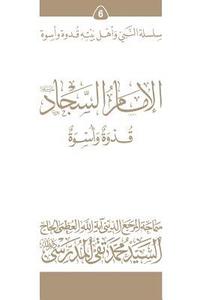 6
سلسلة النبي وأهل بيته قدوة وأسوة
الإمام السجاد
قدوة وأسوة
سماحة المرجع الديني آية الله العظمى الحاج
السيد محمد تقي المدرسي